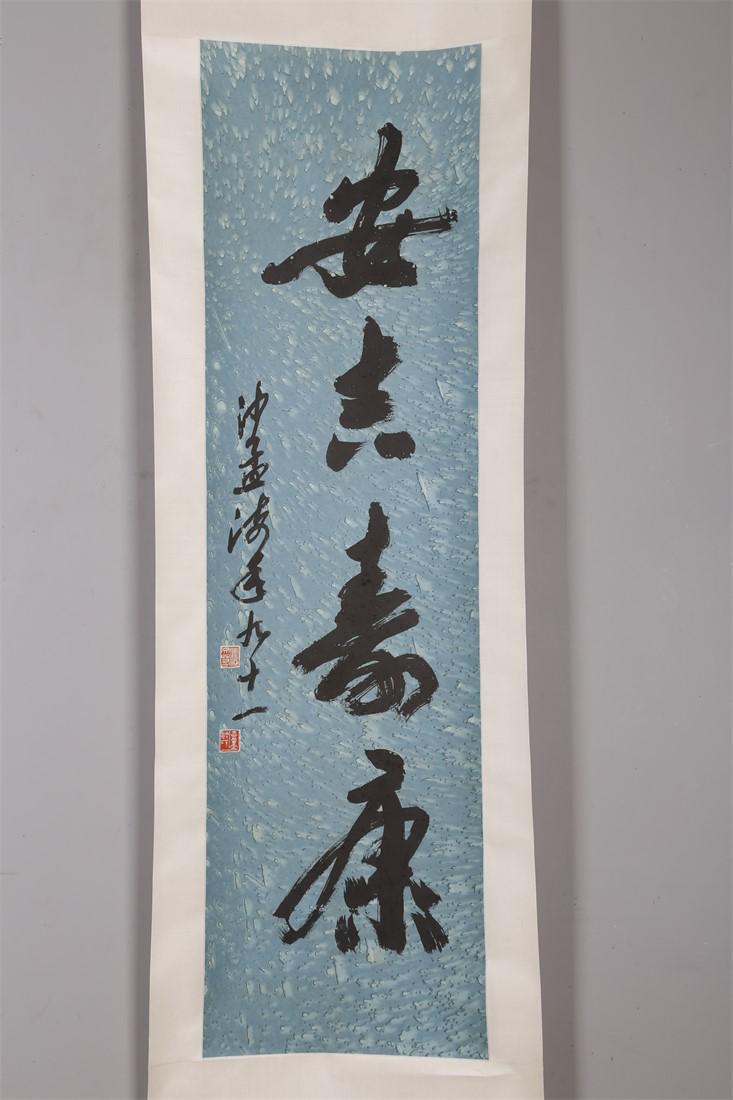 安吉壽康
沙孟海年九十一